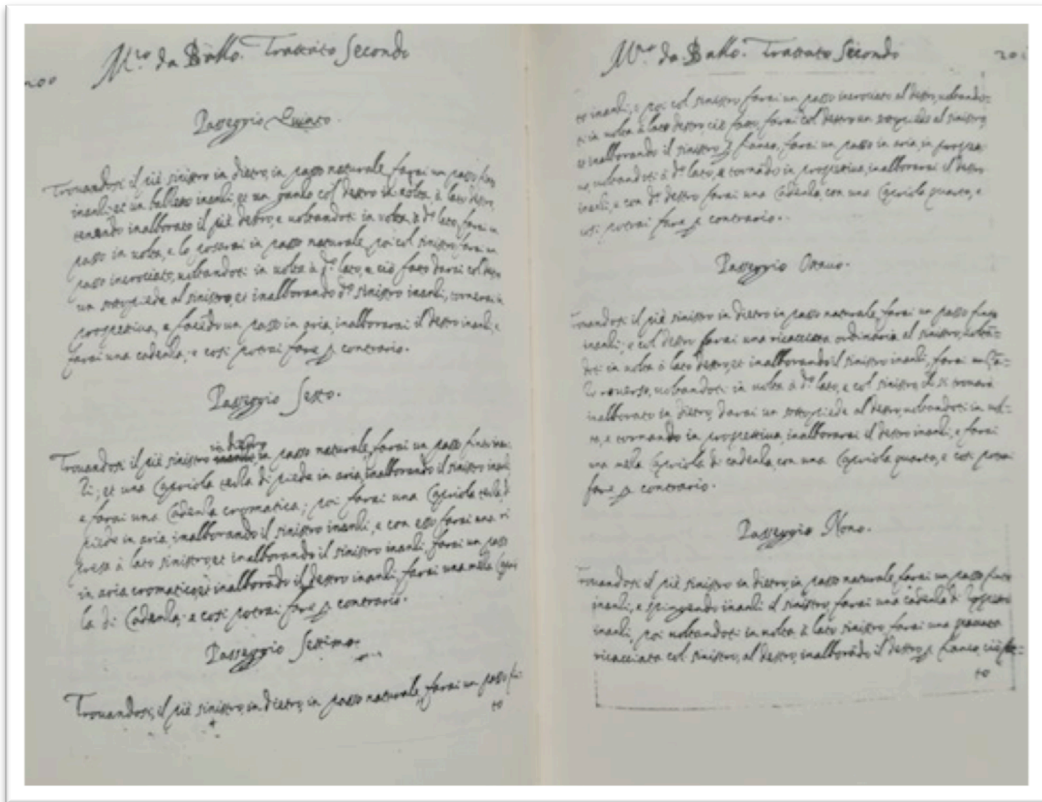 200
M.ro da Ballo. Trattato Secondo
Passeggio Quinto.
Trouandosi il piè sinistro in dietro, in passo naturale, farai un passo finto
inanti, et un balletto inanti, et un col destro in uolta, à lato destro,
tenendo inalborato il piè destro, e uoltandoti in uolta, à d.o lato, farai un
passo in uolta, e lo poserai in passo naturale, poi col sinistro farai un
passo incrociato, uoltandoti in uolta à d.o lato, e ciò fatto darai col destro
un sottopiede al sinistro, et inalborando d.o sinistro inanti, tornerai in
prospettiua, e facēdo un passo in aria, inalborarai il destro inanti, e
farai una cadenza, e così potrai fare p contrario.
Passeggio Sesto.
in dietro
Trouandosi il piè sinistro inanti in passo naturale, farai un passo finto inan
ti; et una Capriola di piede in aria, inalborando il sinistro inanti
e farai una Cadenza cromatica; poi farai una Capriola
piede in aria, inalborando il sinistro inanti, e con esso farai una ri
presa à lato sinistro, et inalborando il sinistro inanti, farai un passo
in aria cromatico, et inalborādo il destro inanti farai una meza Caprio
la di Cadenza; e così potrai fare p contrario.
Passeggio Settimo.
Trouandosi, il piè sinistro, in dietro, in passo naturale, farai un passo fin
to
M.ro da Ballo. Trattato Secondo
201
to inanti, e poi col sinistro farai un passo incrociato al destro, uoltando=
ti in uolta à lato destro, ciò fatto, farai col destro un sottopiede al sinistro,
et inalborando il sinistro p fianco, farai un passo in aria, in
uoltandoti à d.o lato, e tornādo in prospettiua, inalborarai il destro
inanti, e con d.o destro farai una Cadenza, con una Capriola quarta, e
così potrai fare p contrario.
Passeggio Ottauo.
Trouandosi il piè sinistro in dietro in passo naturale, farai un passo finto
inanti, e col destro farai una ricacciata ordinaria al sinistro, uoltā=
doti in uolta à lato destro, et inalborando il sinistro inanti, farai un
rouerso, uoltandoti in uolta à d.o lato, e col sinistro che si trouarà
inalborato in dietro, darai un sottopiede al destro, uoltandoti in uol=
ta, e tornando in prospettiua, inalborarai il destro inanti, e farai
una meza Capriola di cadenza, con una Capriola quarta, e così potrai
fare p contrario.
Passeggio Nono.
Trouandosi il piè sinistro in dietro, in passo naturale, farai un passo finto
inanti, e spingendo inanti il sinistro, farai una cadenza di
inanti, poi uoltandoti in uolta à lato sinistro farai una
ricacciata col sinistro, al destro, inalborādo il destro p fianco, ciò fat=
to